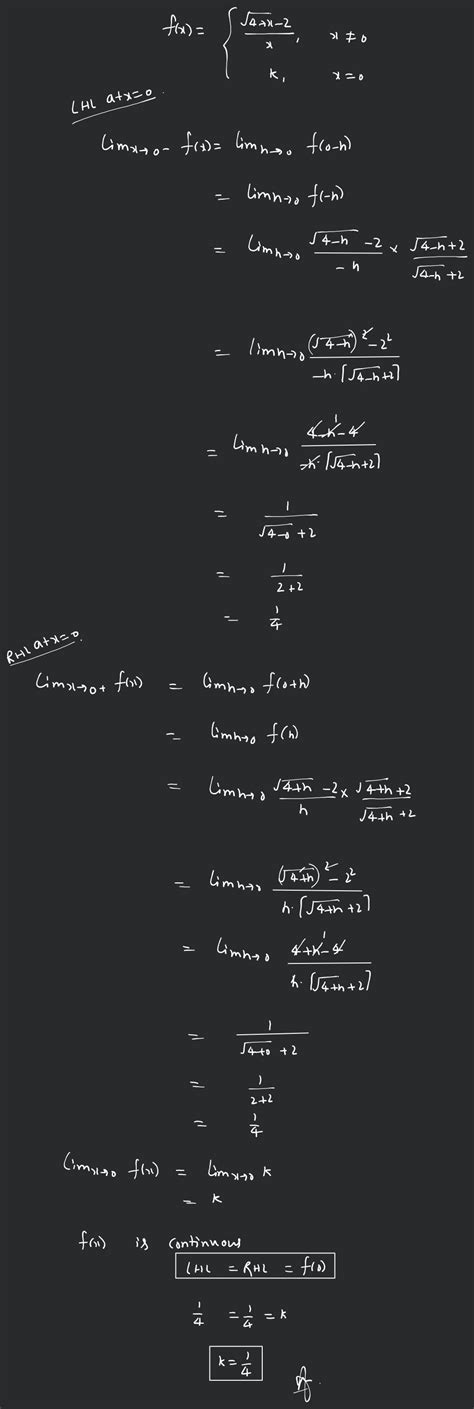 f(x) = { (√4+x - 2)/x, x ≠ 0
k, x = 0
LHL at x=0.
Lim x→0- f(x) = Lim h→0 f(0-h)
= Lim h→0 f(-h)
= Lim h→0 (√4-h - 2)/(-h) × (√4-h + 2)/(√4-h + 2)
= lim h→0 ((√4-h)² - 2²)/(-h·[√4-h+2])
= Lim h→0 (4-h-4)/(-h·[√4-h+2]) 1
= 1/(√4-0 + 2)
= 1/(2+2)
= 1/4
RHL at x=0.
Lim x→0+ f(x) = Lim h→0 f(0+h)
= Lim h→0 f(h)
= Lim h→0 (√4+h - 2)/h × (√4+h + 2)/(√4+h + 2)
= Lim h→0 ((√4+h)² - 2²)/(h·[√4+h+2])
= Lim h→0 (4+h-4)/(h·[√4+h+2]) 1
= 1/(√4+0 + 2)
= 1/(2+2)
= 1/4
Lim x→0 f(x) = Lim x→0 k
= k
f(x) is continuous
LHL = RHL = f(0)
1/4 = 1/4 = k
k = 1/4